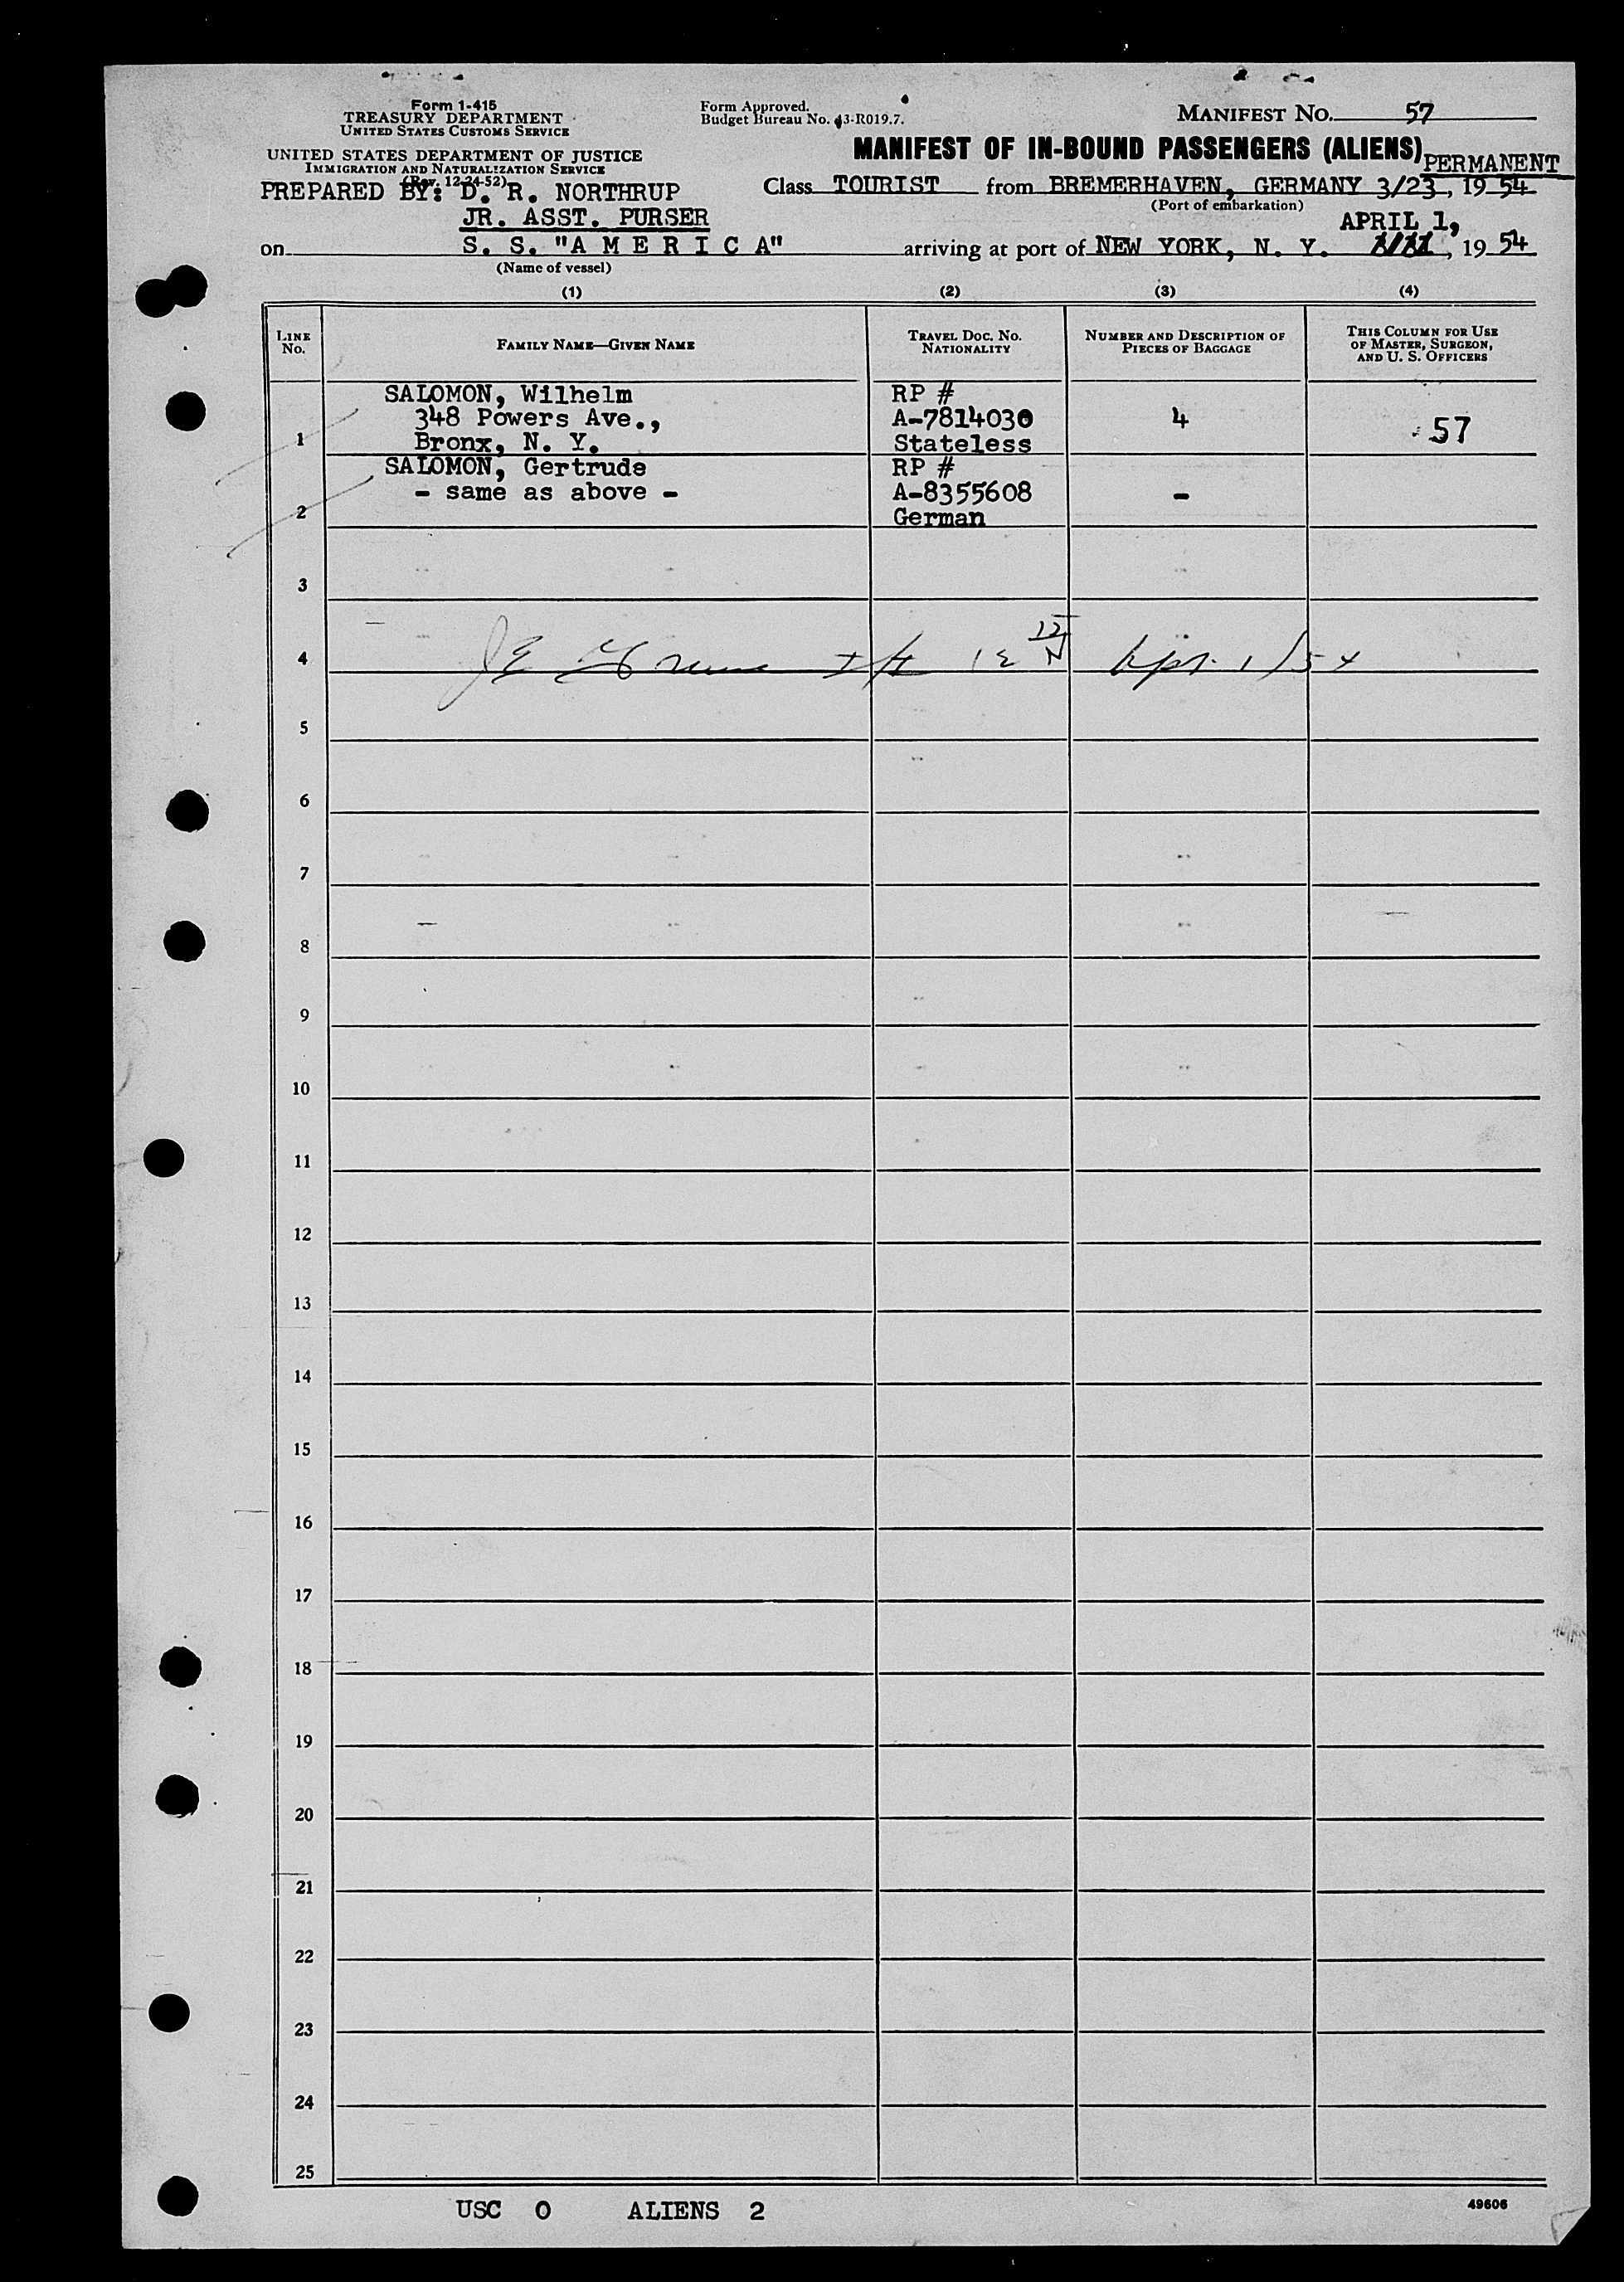 Form 1-415
TREASURY DEPARTMENT
UNITED STATES CUSTOMS SERVICE
UNITED STATES DEPARTMENT OF JUSTICE
IMMIGRATION AND NATURALIZATION SERVICE
(Rev. 12-24-52)
PREPARED BY: D. R. NORTHRUP
JR. ASST. PURSER
Form Approved.
Budget Bureau No. 43-R019.7.
MANIFEST NO. 57
MANIFEST OF IN-BOUND PASSENGERS (ALIENS) PERMANENT
Class TOURIST from BREMERHAVEN, GERMANY 3/23, 19 54
(Port of embarkation)
APRIL 1,
on S. S. "A M E R I C A" arriving at port of NEW YORK, N. Y. , 19 54
(Name of vessel)
(1) (2) (3) (4)
LINE NO. FAMILY NAME—GIVEN NAME TRAVEL DOC. NO. NATIONALITY NUMBER AND DESCRIPTION OF PIECES OF BAGGAGE THIS COLUMN FOR USE OF MASTER, SURGEON, AND U. S. OFFICERS
SALOMON, Wilhelm RP #
348 Powers Ave., A-7814030 4 57
1 Bronx, N. Y. Stateless
SALOMON, Gertrude RP #
- same as above - A-8355608 -
2 German
3
4 12 N Apr. 1/54
5
6
7
8
9
10
11
12
13
14
15
16
17
18
19
20
21
22
23
24
25
USC 0 ALIENS 2
49606